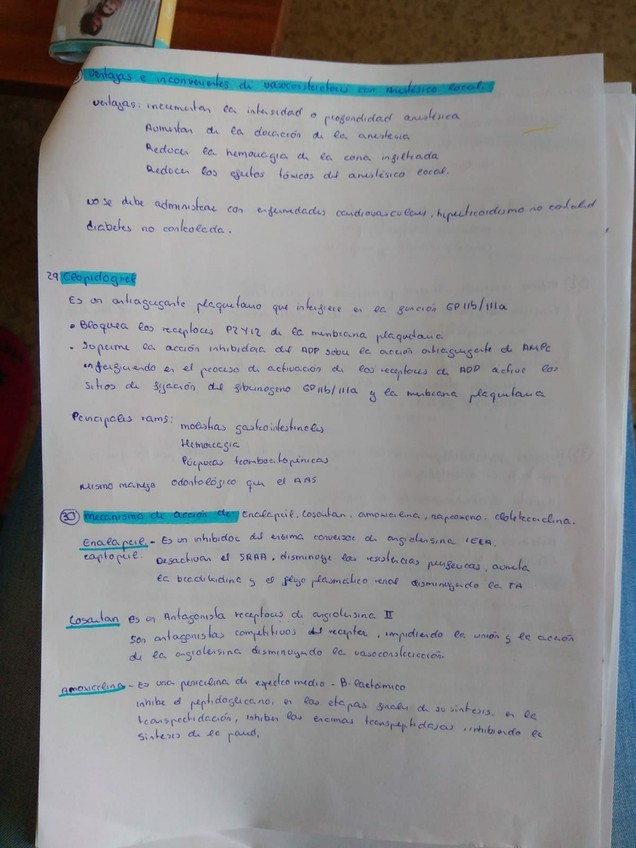 Ventajas e inconvenientes de vasoconstrictores con Anestésico local.
Ventajas: incrementan la intensidad o profundidad anestésica
Aumentan de la duración de la anestesia
Reducen la hemorragia de la zona infiltrada
Reducen los efectos tóxicos del anestésico local.
NO se debe administrar con enfermedades cardiovasculares, hiperticoidismo no contolad
diabetes no controlada.
29 Clopidogrel
Es un antiagregante plaquetario que interfiere en la función GPIIb/IIIa
• Bloquea los receptores P2Y12 de la membrana plaquetaria
• Suprime la acción inhibidora del ADP sobre la acción antiagregante de AMPc
interfiriendo en el proceso de activación de los receptores de ADP active los
sitios de fijación del fibrinogeno GPIIb/IIIa y la membrana plaquetaria
Principales rams: molestias gastrointestinales
Hemorragia
Púrpuras trombocitopénicas
Mismo manejo odontológico que el AAS
30 Mecanismo de acción de Enalapril, Losartan, amoxicilina, naproxeno,
Enalapril - Es un inhibidor del enzima conversor de angiotensina IECA.
captopril. Desactivan el SRAA, disminuye las resistencias periféricas, aumenta
la bradikidina y el flujo plasmático renal disminuyendo la TA
Losartan es un Antagonista receptores de angiotensina II
Son antagonistas competitivos del receptor, impidiendo la unión y la acción
de la angiotensina disminuyendo la vasoconstricción.
Amoxicilina - Es una penicilina de espectro medio - B-lactámico
inhibe el peptidoglicano, en las etapas finales de su síntesis, en la
transpeptidación, inhiben las enzimas transpeptidasas, inhibiendo la
síntesis de la pared,